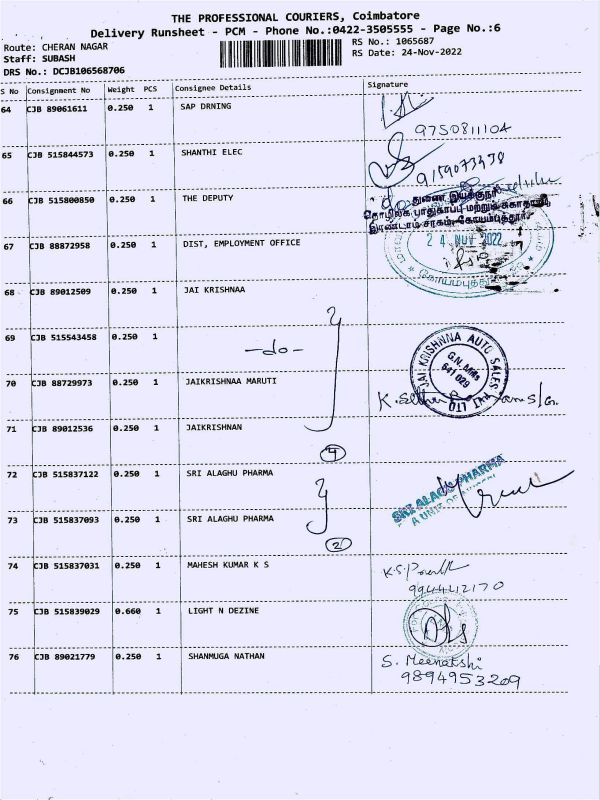 THE PROFESSIONAL COURIERS, Coimbatore
Delivery Runsheet - PCM - Phone No.:0422-3505555 - Page No.:6
Route: CHERAN NAGAR RS No.: 1065687
Staff: SUBASH RS Date: 24-Nov-2022
DRS No.: DCJB106568706
S No Consignment No Weight PCS Consignee Details Signature
64 CJB 89061611 0.250 1 SAP DRNING
9750811104
65 CJB 515844573 0.250 1 SHANTHI ELEC
9159073438
66 CJB 515800850 0.250 1 THE DEPUTY
துணை இயக்குநர்
தொழிலக பாதுகாப்பு மற்றும் சுகாதாரம்
இரண்டாம் சரகம், கோயம்புத்தூர்
67 CJB 88872958 0.250 1 DIST, EMPLOYMENT OFFICE
24 NOV 2022
கோயமுத்தூர்
68 CJB 89012509 0.250 1 JAI KRISHNAA
69 CJB 515543458 0.250 1
-do-
70 CJB 88729973 0.250 1 JAIKRISHNAA MARUTI
JAI KRISHNNA AUTO SALES PVT LTD
G.N. Mills
641 029
71 CJB 89012536 0.250 1 JAIKRISHNAN
4
72 CJB 515837122 0.250 1 SRI ALAGHU PHARMA
SRI ALAGU PHARMA
A UNIT OF
73 CJB 515837093 0.250 1 SRI ALAGHU PHARMA
2
74 CJB 515837031 0.250 1 MAHESH KUMAR K S
9944412170
75 CJB 515839029 0.660 1 LIGHT N DEZINE
76 CJB 89021779 0.250 1 SHANMUGA NATHAN
S. Meenakshi
9894953209